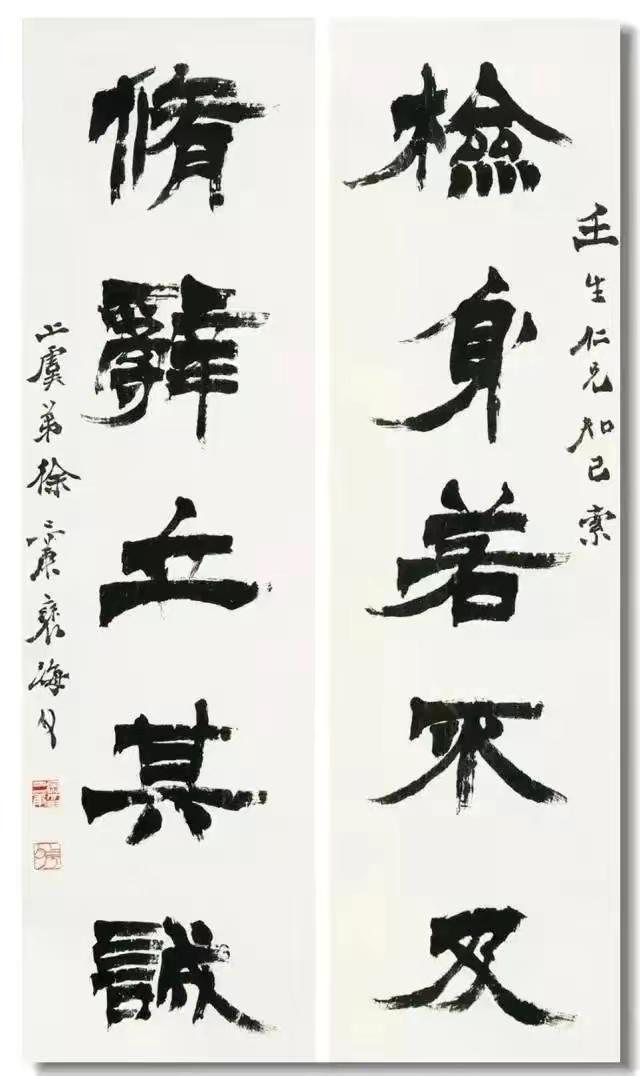 壬生仁兄知己索
檢身若不及
脩辭立其誠
上虞弟徐三庚褎海父